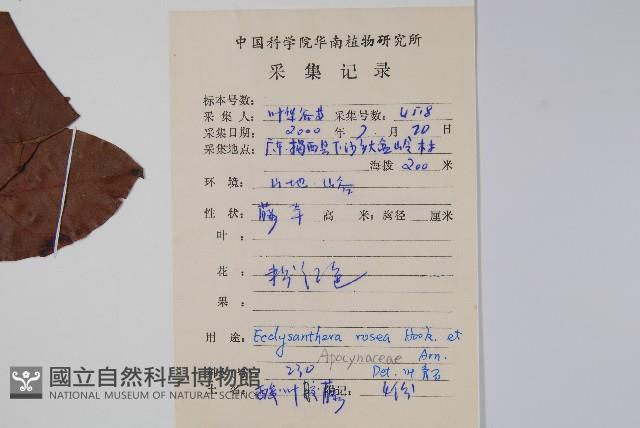 中国科学院华南植物研究所
采集记录
标本号数:
采集人: 叶华谷 采集号数: 4518
采集日期: 2000 年 7 月 20 日
采集地点: 广东揭西县
海拨 200 米
环境: 山地. 山谷
性状: 藤本 高 米; 胸径 厘米
叶:
花: 粉红色
果:
用途: Ecdysanthera rosea Hook. et
Apocynaceae Arn.
230 Det. 叶
酸叶胶藤 附记: 4份
國立自然科學博物館
NATIONAL MUSEUM OF NATURAL SCIENCE